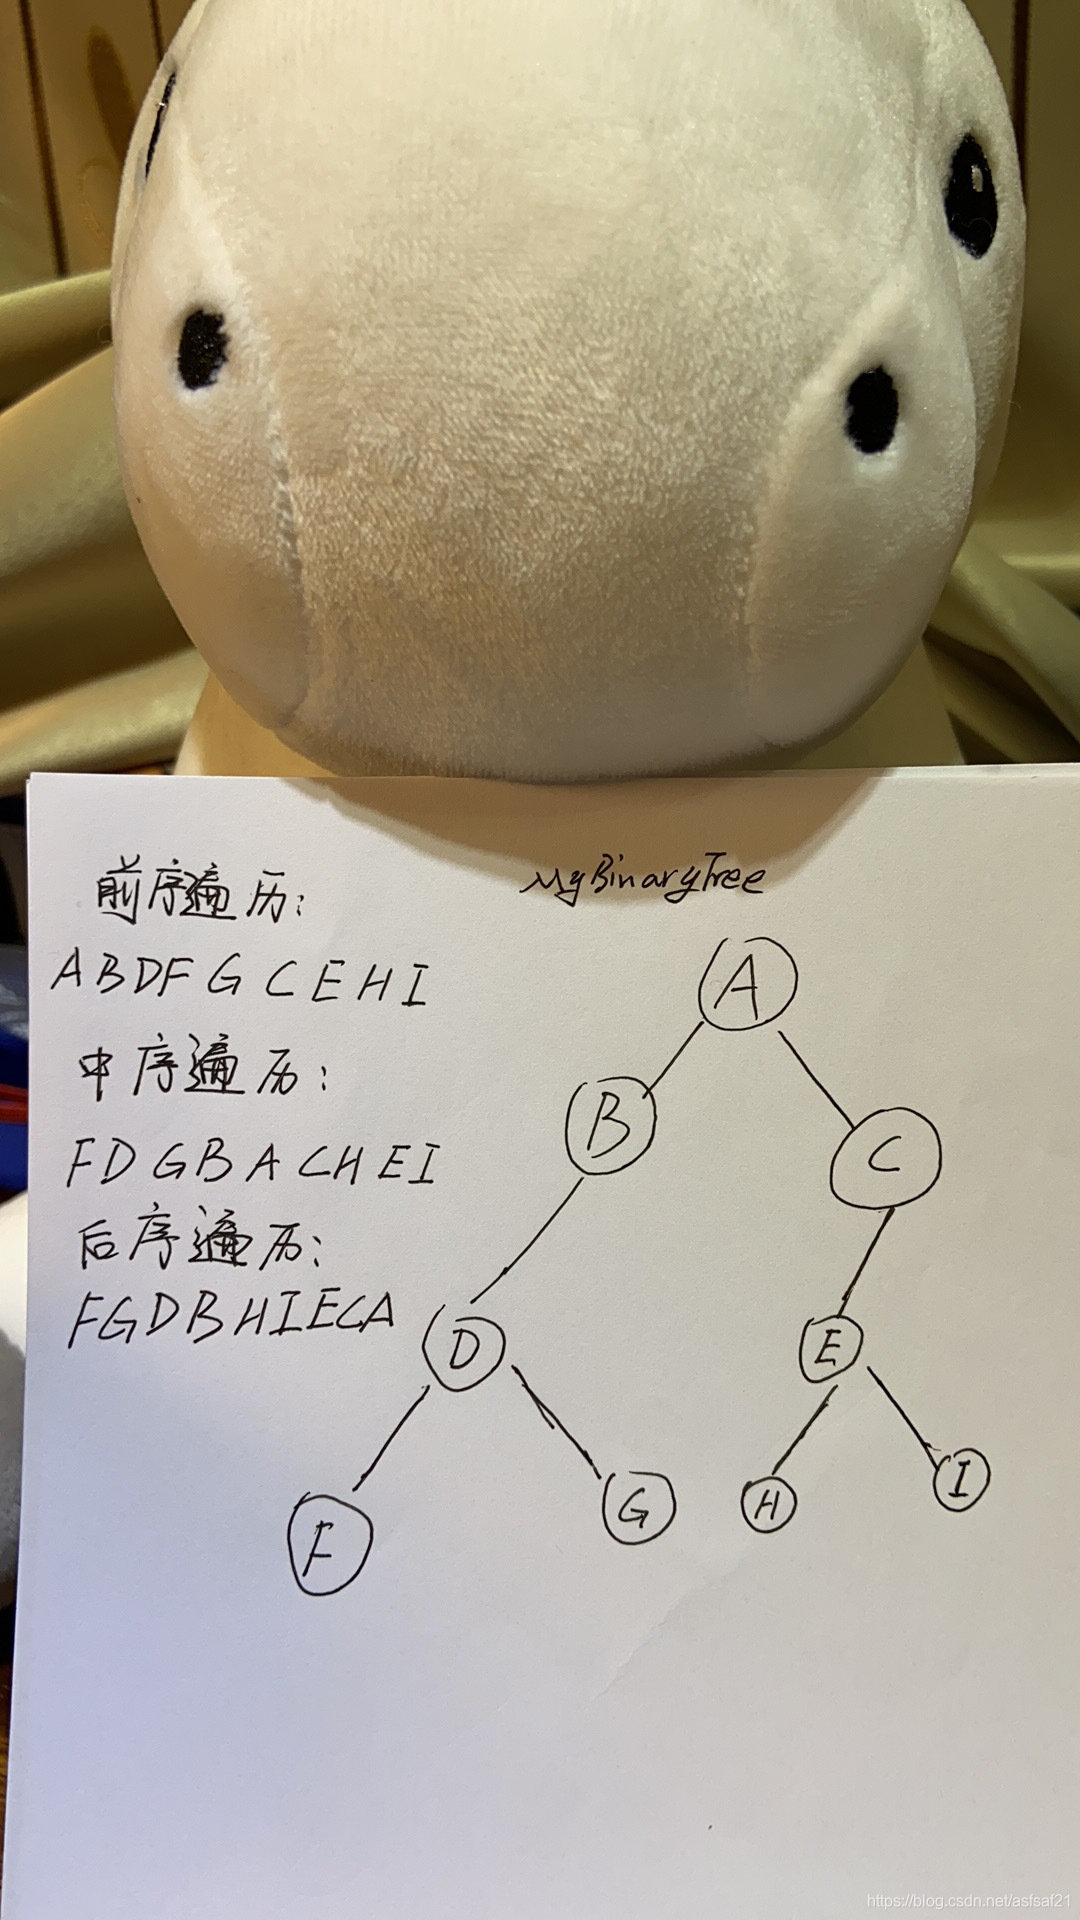 前序遍历:
ABDFGCEHI
中序遍历:
FDGBACHEI
后序遍历:
FGDBHIECA
MyBinaryTree
A
B
C
D
E
F
G
H
I
https://blog.csdn.net/asfsaf21